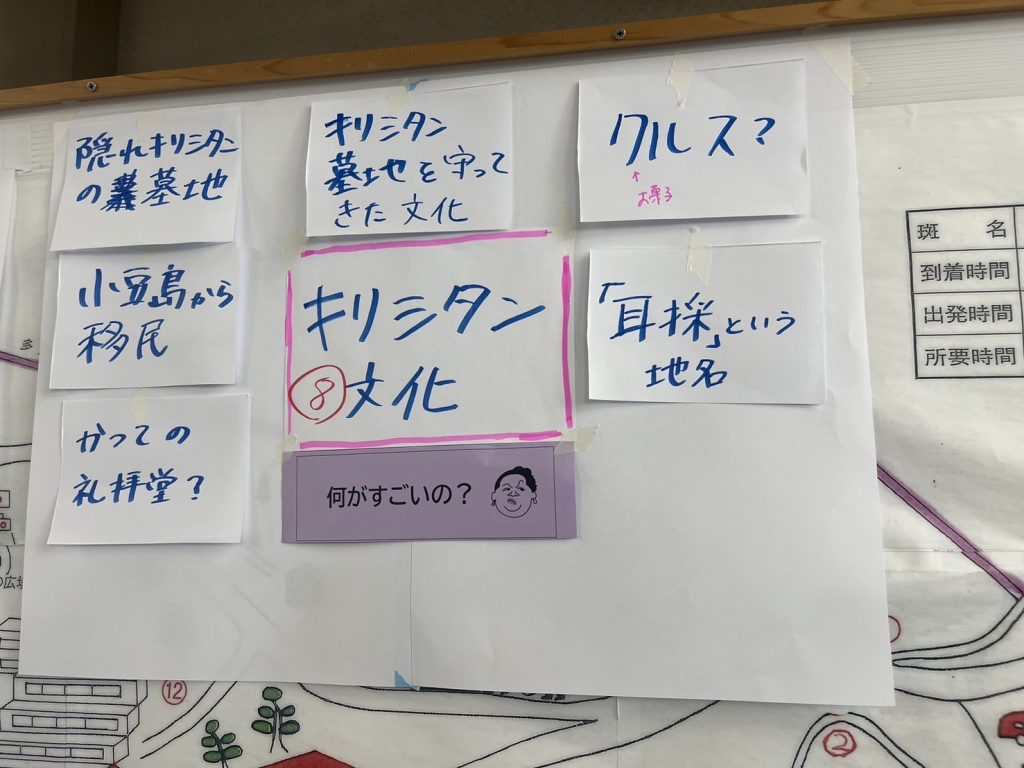 隠れキリシタン
の墓地
キリシタン
墓地を守って
きた文化
クルス？
↑
お菓子
小豆島から
移民
キリシタン
⑧文化
「耳採」という
地名
かつての
礼拝堂？
何がすごいの？
班　名
到着時間
出発時間
所要時間
多
の広場
⑫
②